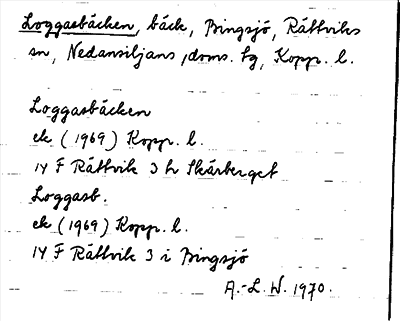 Loggasbäcken, bäck, Bingsjö, Rättviks
sn, Nedansiljans doms. tg, Kopp. l.
Loggasbäcken
ek (1969) Kopp. l.
14 F Rättvik 3 h Skårberget
Loggasb.
ek (1969) Kopp. l.
14 F Rättvik 3 i Bingsjö
A.-L. W. 1970.